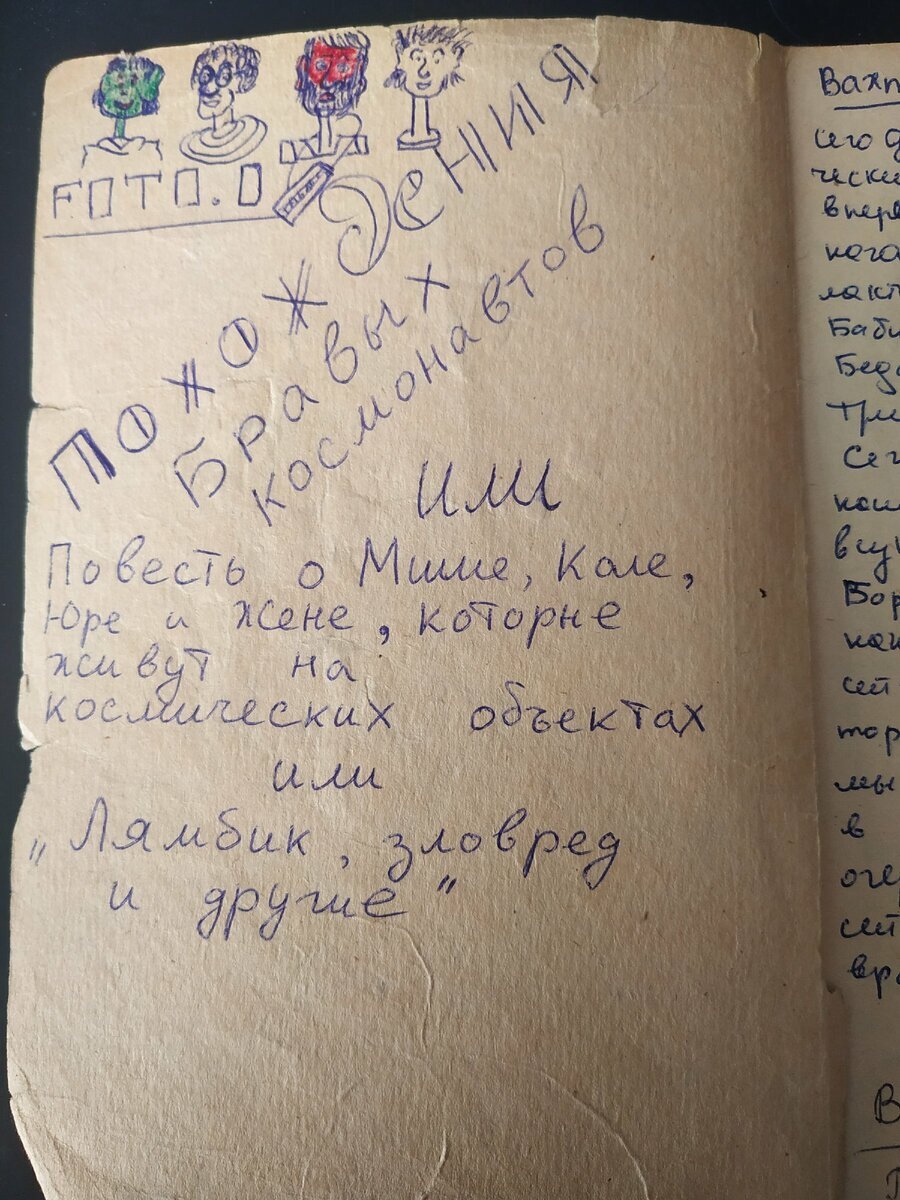 FOTO.O
ПОХОЖДЕНИЯ
Бравых
космонавтов
ИЛИ
Повесть о Мише, Коле,
Юре и Жене, которые
живут на
космических объектах
или
„Лямбик, зловред
и другие"
Вахт
сего д
чески
впер
нога
лакт
Баби
Беда
Три
Сег
кош
вну
Бор
как
сей
тор
мы
в
оче
сей
вра
В